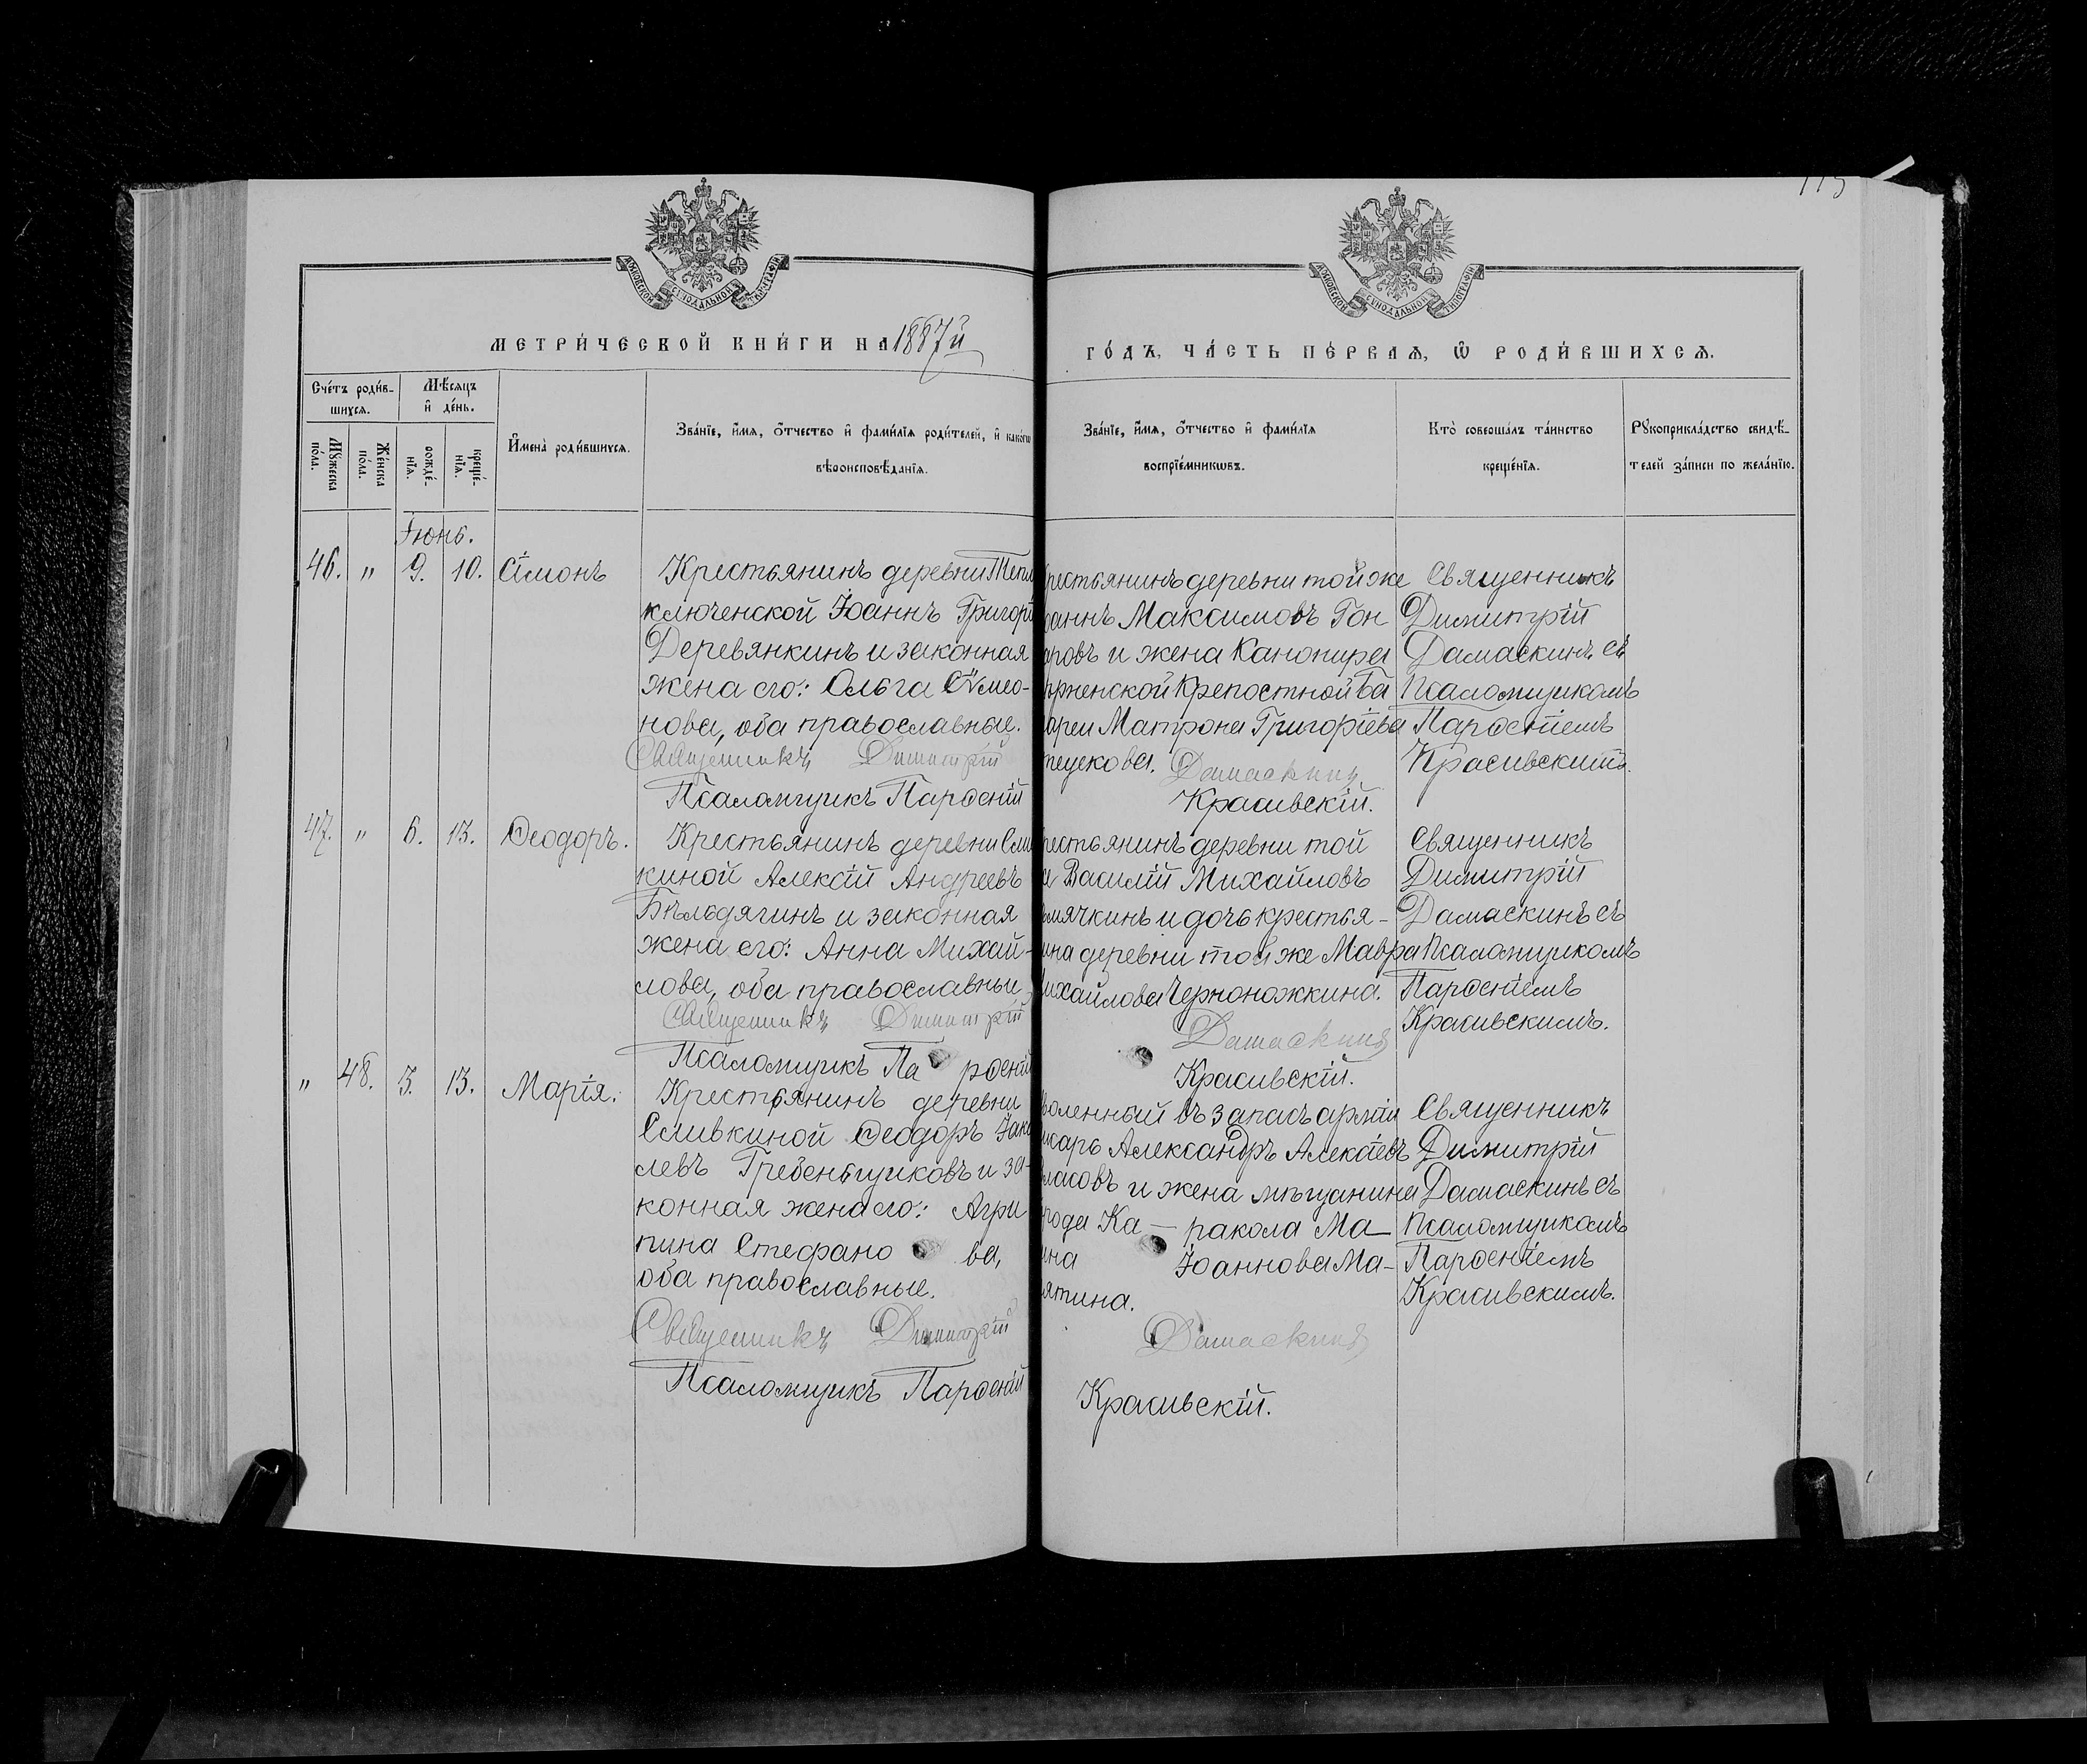 МОСКОВСКОЙ СѴНОДАЛЬНОЙ ТИПОГРАФІИ
МОСКОВСКОЙ СѴНОДАЛЬНОЙ ТИПОГРАФІИ
МЕТРИ́ЧЕСКОЙ КНИ́ГИ НА 1887й
ГО́ДЪ, ЧА́СТЬ ПЕ́РВАѦ, Ѡ РОДИ́ВШИХСѦ.
Сче́тъ роди́в-
шихсѧ.
Мѣ́сѧцъ
и҆ де́нь.
Мꙋ́жеска
по́ла.
Же́нска
по́ла.
рожде́-
нїѧ.
креще́-
нїѧ.
И҆мена̀ роди́вшихсѧ.
Зва́нїе, и҆́мѧ, ѻ҆́тчество и҆ фами́лїѧ роди́телей, и҆ како́гѡ
вѣроисповѣ́данїѧ.
Зва́нїе, и҆́мѧ, ѻ҆́тчество и҆ фами́лїѧ
воспрїе́мникѡвъ.
Кто̀ соверша́лъ та́инство
креще́нїѧ.
Рꙋкоприкла́дство свидѣ́-
телей за́писи по жела́нїю.
Іюнь.
46. " 9. 10. Сімонъ
Крестьянинъ деревни Тепло
ключенской Іоаннъ Григорі
Деревянкинъ и законная
жена его: Ольга Сѵмео-
нова, оба православные.
Священникъ Димитрій
Псаломщикъ Парѳеній
рестьянинъ деревни той же
оаннъ Максимовъ Гон
аровъ и жена Канонира
рненской Крепостной Ба
ареи Матрона Григоріева
пецкова. Дамаскинъ
Красивскій.
Священникъ
Димитрій
Дамаскинъ съ
Псаломщикомъ
Парѳеніемъ
Красивскимъ.
47. " 6. 13. Ѳеодоръ.
Крестьянинъ деревни Сли
киной Алексій Андреевъ
Бѣльдягинъ и законная
жена его: Анна Михай-
лова, оба православные
Священникъ Димитрій
Псаломщикъ Парѳеній
рестьянинъ деревни той
е Василій Михайловъ
мячкинъ и дочь крестья-
ина деревни той же Мавра
ихайлова Черноножкина.
Дамаскинъ
Красивскій.
Священникъ
Димитрій
Дамаскинъ съ
Псаломщикомъ
Парѳеніемъ
Красивскимъ.
" 48. 3. 13. Марія.
Крестьянинъ деревни
Сливкиной Ѳеодоръ Іако
левъ Гребеньщиковъ и за-
конная жена его: Агри
пина Стефанова,
оба православные.
Священникъ Димитрій
Псаломщикъ Парѳеній
воленный въ запасъ арміи
исарь Александръ Алексіевъ
ласовъ и жена мѣщанина
рода Ка-ракола Ма-
ина Іоаннова Ма-
ятина.
Дамаскинъ
Красивскій.
Священникъ
Димитрій
Дамаскинъ съ
Псаломщикомъ
Парѳеніемъ
Красивскимъ.